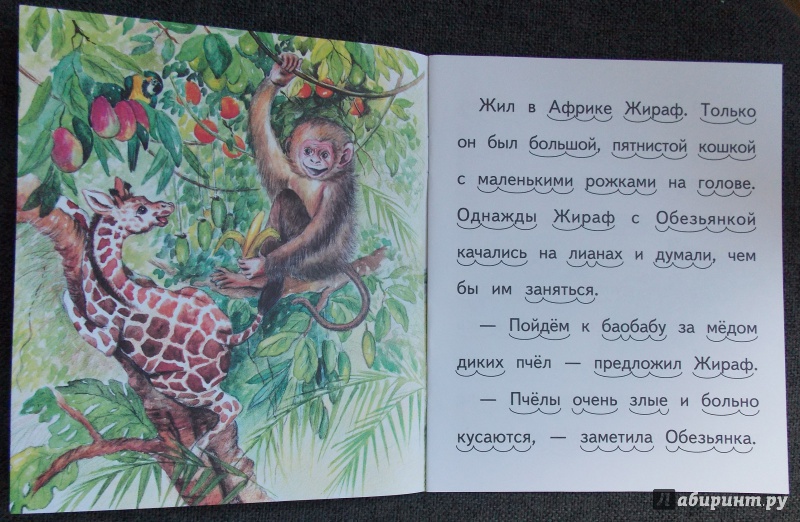 Жил в Африке Жираф. Только
он был большой, пятнистой кошкой
с маленькими рожками на голове.
Однажды Жираф с Обезьянкой
качались на лианах и думали, чем
бы им заняться.
— Пойдём к баобабу за мёдом
диких пчёл — предложил Жираф.
— Пчёлы очень злые и больно
кусаются, — заметила Обезьянка.
Лабиринт.ру